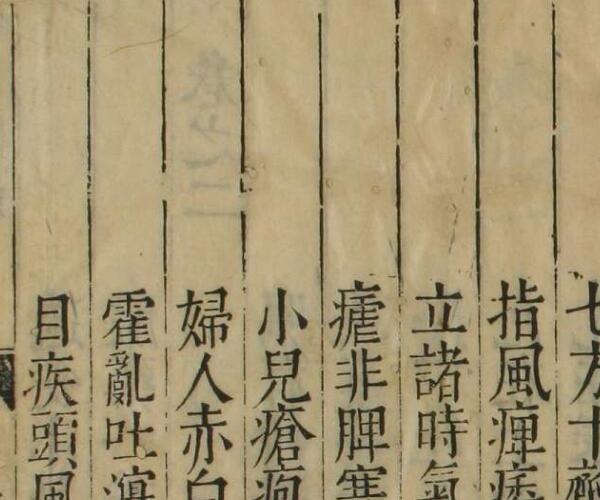 七方十
指風痺痿
立諸時氣
瘧非脾寒
小兒瘡疱
婦人赤白
霍亂吐
目疾頭風